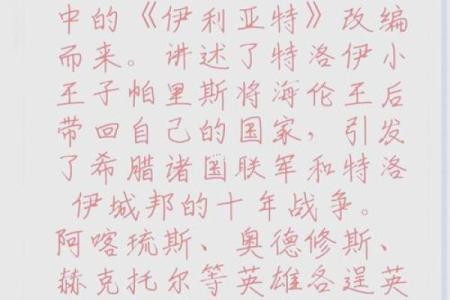 中的《伊利亚特》改编
而来。讲述了特洛伊小
王子帕里斯将海伦王后
带回自己的国家，引发
了希腊诸国联军和特洛
伊城邦的十年战争。
阿喀琉斯、奥德修斯、
赫克托尔等英雄各逞英